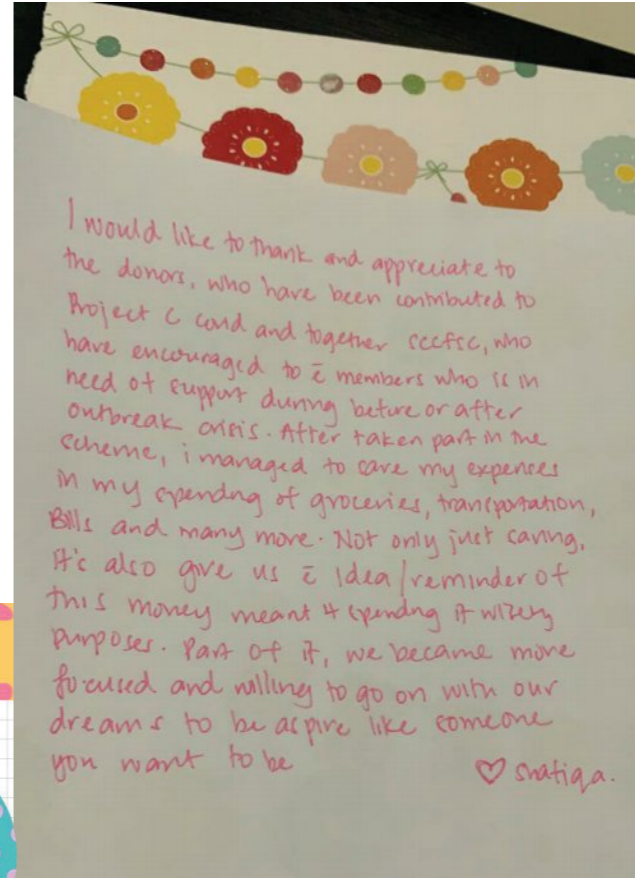 I would like to thank and appreciate to
the donors, who have been contributed to
Project C card and together sccfsc, who
have encouraged to c̄ members who is in
need of support during before or after
outbreak crisis. After taken part in the
scheme, i managed to save my expenses
in my spending of groceries, transportation,
Bills and many more. Not only just saving,
It's also give us c̄ idea/reminder of
this money meant 4 spending it
purposes. Part of it, we became more
focused and willing to go on with our
dreams to be aspire like someone
you want to be
♡ shatiqa.